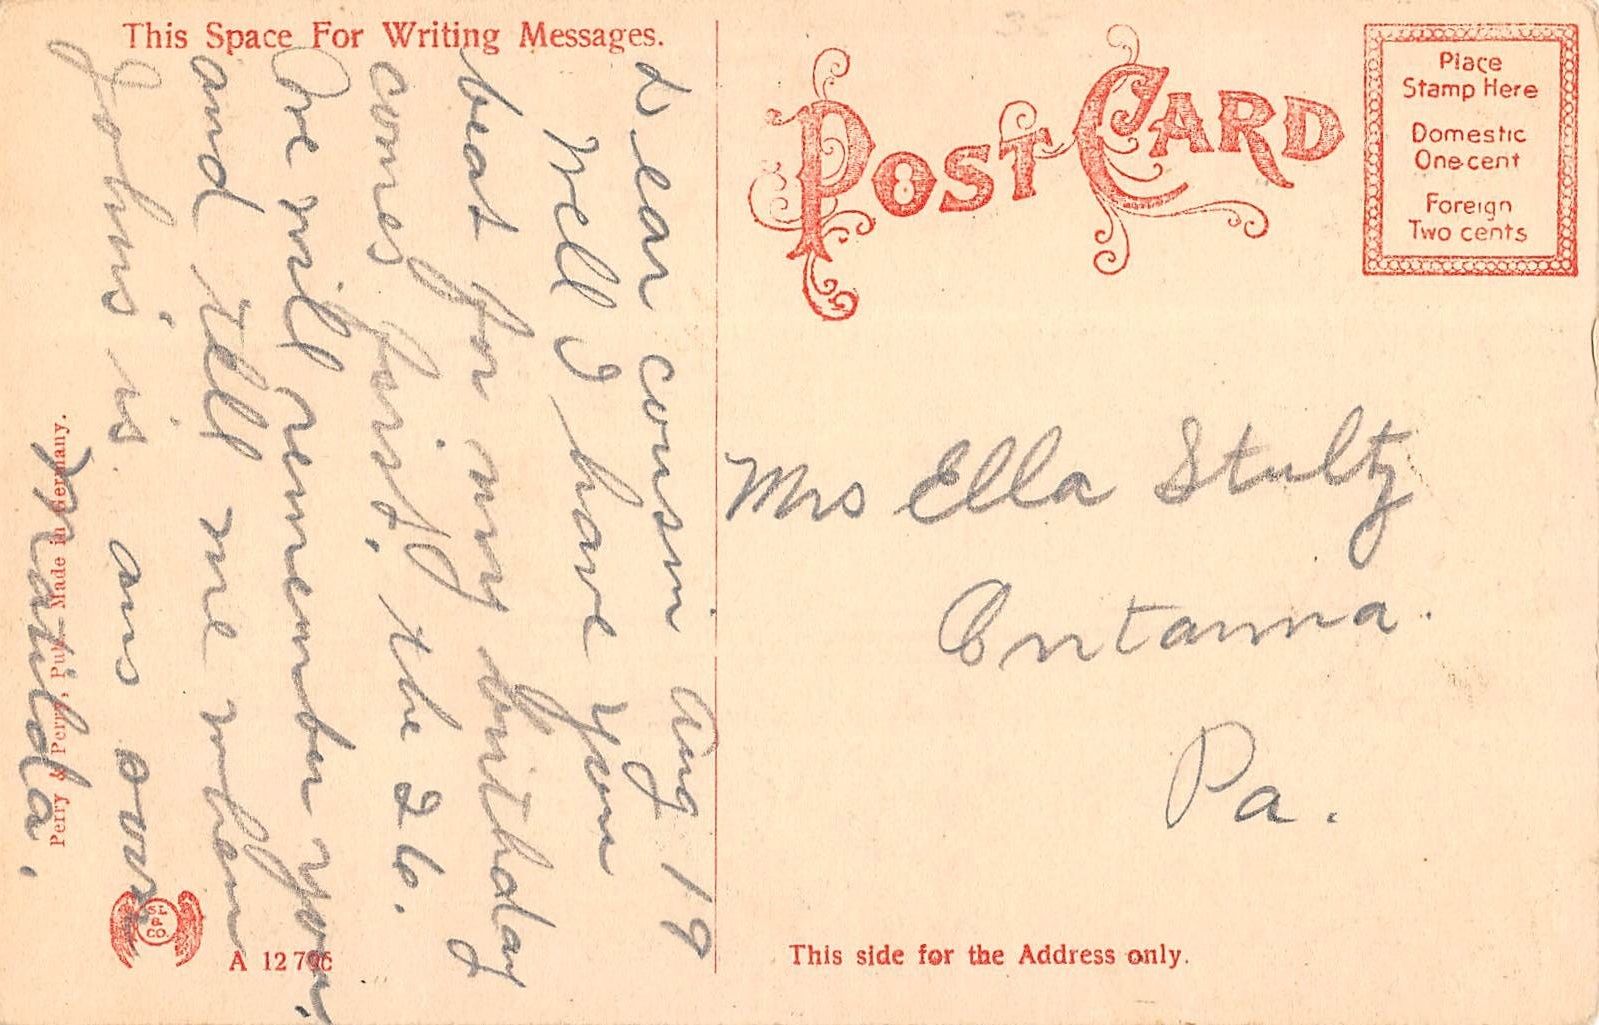 This Space For Writing Messages.
Dear cousin Aug 19
Well I have you
beat for my birthday
comes first, the 26.
One will remember you.
and tell me when
John's is. ans soon
Matilda.
Perry & Perry, Pub. Made in Germany.
SL
&
CO.
A 12796
POST CARD
Place
Stamp Here
Domestic
One cent
Foreign
Two cents
Mrs Ella Stultz
Entanna.
Pa.
This side for the Address only.